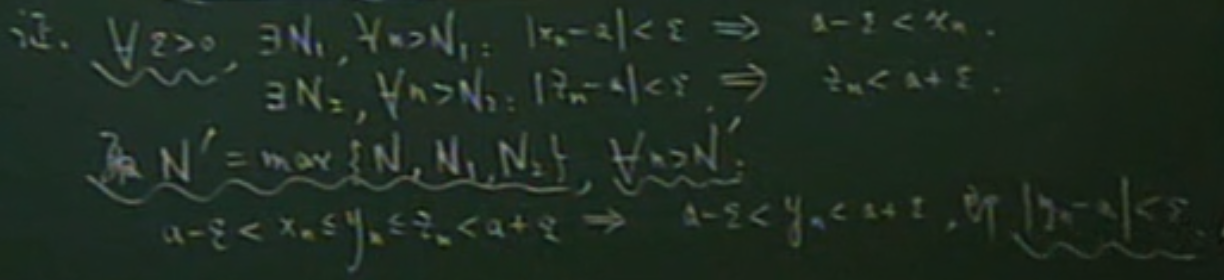 证. ∀ε>0, ∃N₁, ∀n>N₁: |xₙ-a|<ε ⇒ a-ε<xₙ.
∃N₂, ∀n>N₂: |zₙ-a|<ε ⇒ zₙ<a+ε.
取 N'=max{N, N₁, N₂}, ∀n>N':
a-ε<xₙ≤yₙ≤zₙ<a+ε ⇒ a-ε<yₙ<a+ε, 即 |yₙ-a|<ε.